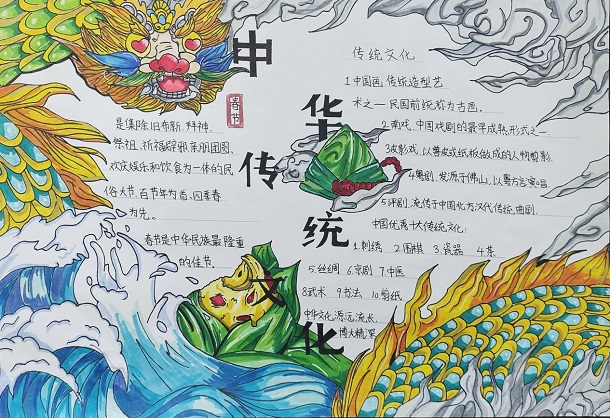 中
华
传
统
文
化
春节
是集除旧布新、拜神、
祭祖、祈福辟邪、亲朋团圆、
欢庆娱乐和饮食为一体的民
俗大节。百节年为首、四季春
为先。
春节是中华民族最隆重
的佳节。
传统文化
1.中国画,传统造型艺
术之一 民国前统称为古画。
2.南戏、中国戏剧的最早成熟形式之一
3.皮影戏,以兽皮或纸板做成的人物剪影
4.粤剧,发源于佛山,以粤方言演唱
5.评剧、流传于中国北方
中国优秀十大传统文化:
1.刺绣 2.围棋 3.瓷器 4.茶
5.丝绸 6.京剧 7.中医
8.武术 9.书法 10.剪纸
中华文化源远流长、
博大精深